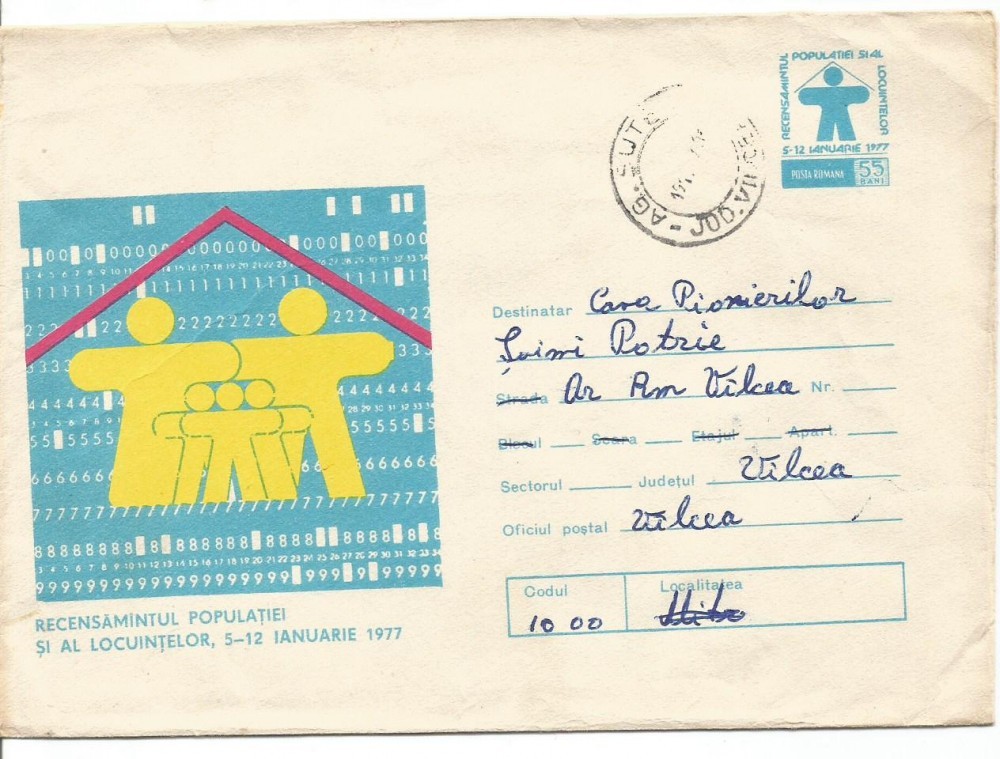 RECENSĂMÎNTUL POPULAȚIEI ȘI AL LOCUINȚELOR
5-12 IANUARIE 1977
POSTA ROMANA 55 BANI
AG. JUD. VILCEA
Destinatar Casa Pionierilor
Șoimi Patrie
Strada Or Rm Vîlcea Nr.
Blocul Scara Etajul Apart.
Sectorul Județul Vîlcea
Oficiul poștal Vîlcea
Codul Localitatea
10 00
RECENSĂMÎNTUL POPULAȚIEI
ȘI AL LOCUINȚELOR, 5-12 IANUARIE 1977